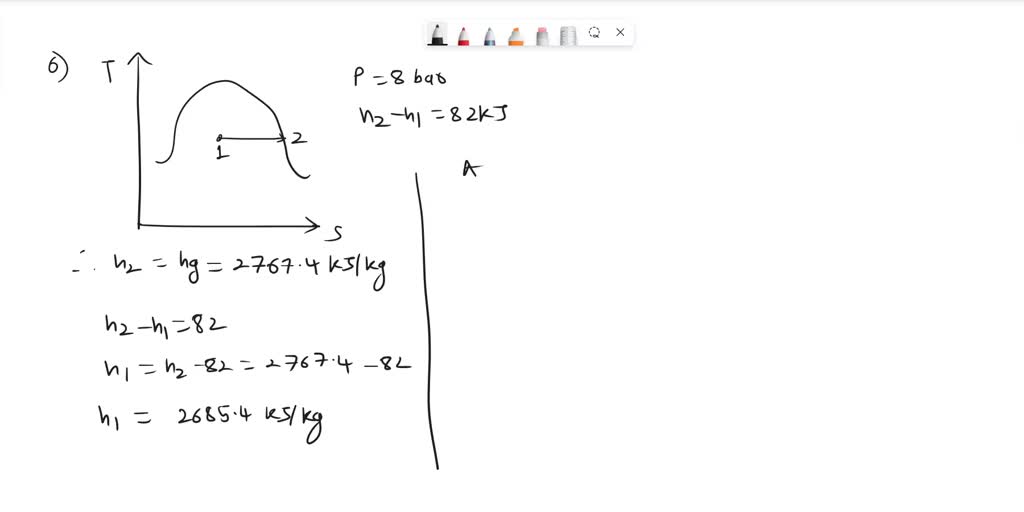 6)
T
1
2
S
P = 8 bar
h2 - h1 = 82 kJ
A
∴ h2 = hg = 2767.4 kJ/kg
h2 - h1 = 82
h1 = h2 - 82 = 2767.4 - 82
h1 = 2685.4 kJ/kg